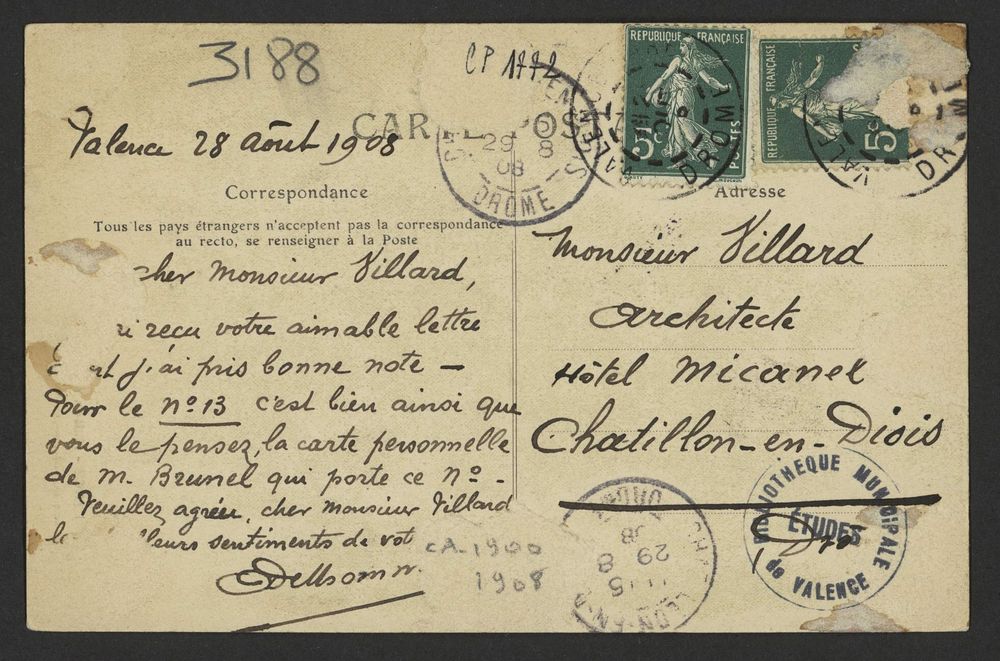 3188
CP 1772
RÉPUBLIQUE FRANÇAISE
5c
POSTES
RÉPUBLIQUE FRANÇAISE
5c
VALENCE
DROME
VALE
DROM
CARTE POS
29 8
08
DROME
Valence 28 Août 1908
Correspondance
Tous les pays étrangers n'acceptent pas la correspondance
au recto, se renseigner à la Poste
cher Monsieur Villard,
i reçu votre aimable lettre
j'ai pris bonne note —
Pour le n° 13 c'est bien ainsi que
vous le pensez, la carte personnelle
de M. Brunel qui porte ce N° -
Veuillez agréer, cher Monsieur Villard
leurs sentiments de vot
CA. 1900
1908
Adresse
Monsieur Villard
Architecte
Hôtel Micanel
Chatillon-en-Diois
29 8
08
BIBLIOTHEQUE MUNICIPALE
ÉTUDES
de VALENCE